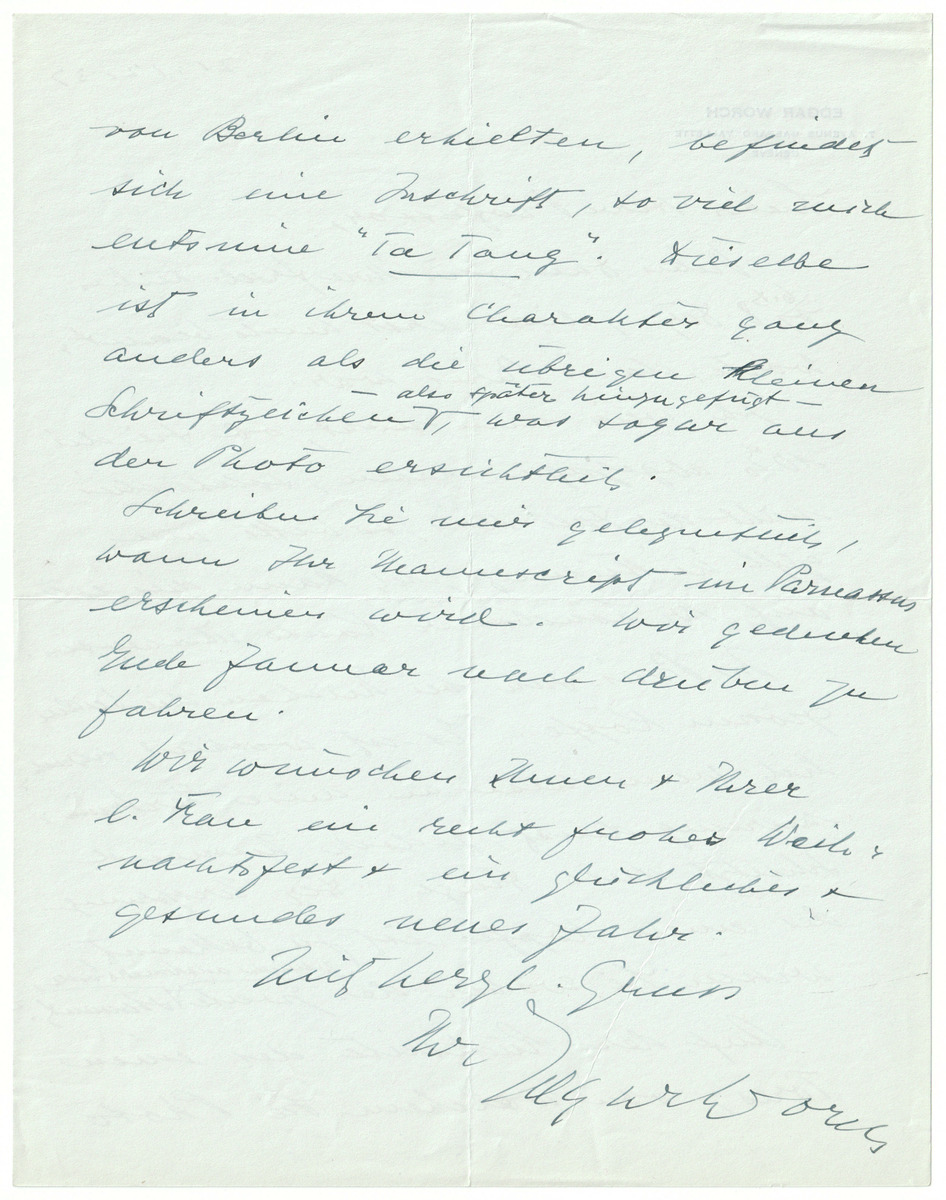 von Berlin erhielten, befindet
sich eine Inschrift, so viel mich
entsinne "Ta Tang". Dieselbe
ist in ihrem Charakter ganz
anders als die übrigen kleinen
– also später hinzugefügt –
Schriftzeichen, was sogar aus
der Photo ersichtlich.
Schreiben Sie mir gelegentlich,
wann Ihr Manuscript im Parnassus
erscheinen wird. Wir gedenken
Ende Januar nach drüben zu
fahren.
Wir wünschen Ihnen + Ihrer
l. Frau ein recht frohes Weih-
nachtsfest + ein glückliches +
gesundes neues Jahr.
Mit herzl. Gruss
Ihr
Edgar Worch
EDGAR WORCH